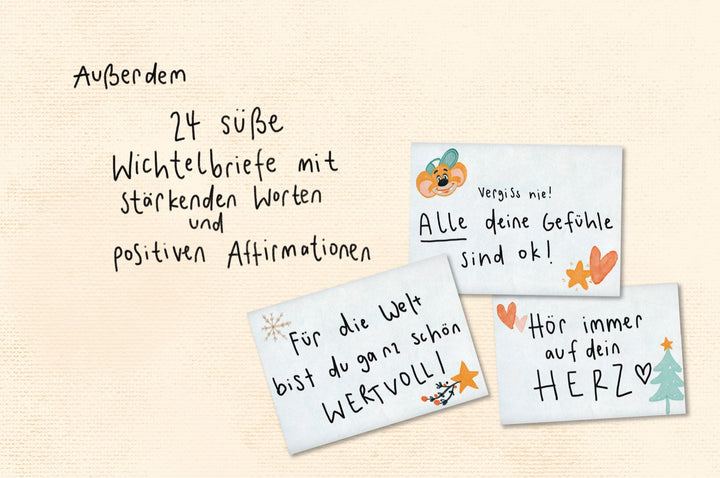 Außerdem
24 süße
Wichtelbriefe mit
stärkenden Worten
und
positiven Affirmationen
Vergiss nie!
Alle deine Gefühle
sind ok!
Für die Welt
bist du ganz schön
WERTVOLL!
Hör immer
auf dein
HERZ